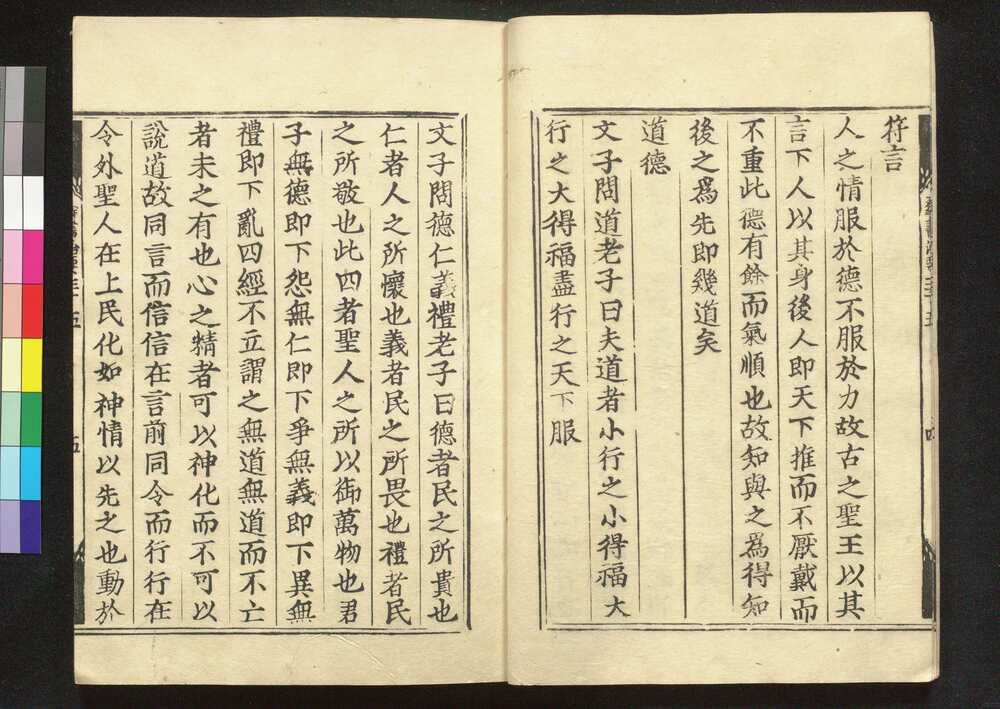 符言
人之情服於德不服於力故古之聖王以其
言下人以其身後人即天下推而不厭戴而
不重此德有餘而氣順也故知與之為得知
後之為先即幾道矣
道德
文子問道老子曰夫道者小行之小得福大
行之大得福盡行之天下服
文子問德仁義禮老子曰德者民之所貴也
仁者人之所懷也義者民之所畏也禮者民
之所敬也此四者聖人之所以御萬物也君
子無德即下怨無仁即下爭無義即下異無
禮即下亂四經不立謂之無道無道而不亡
者未之有也心之精者可以神化而不可以
說道故同言而信信在言前同令而行行在
令外聖人在上民化如神情以先之也動於